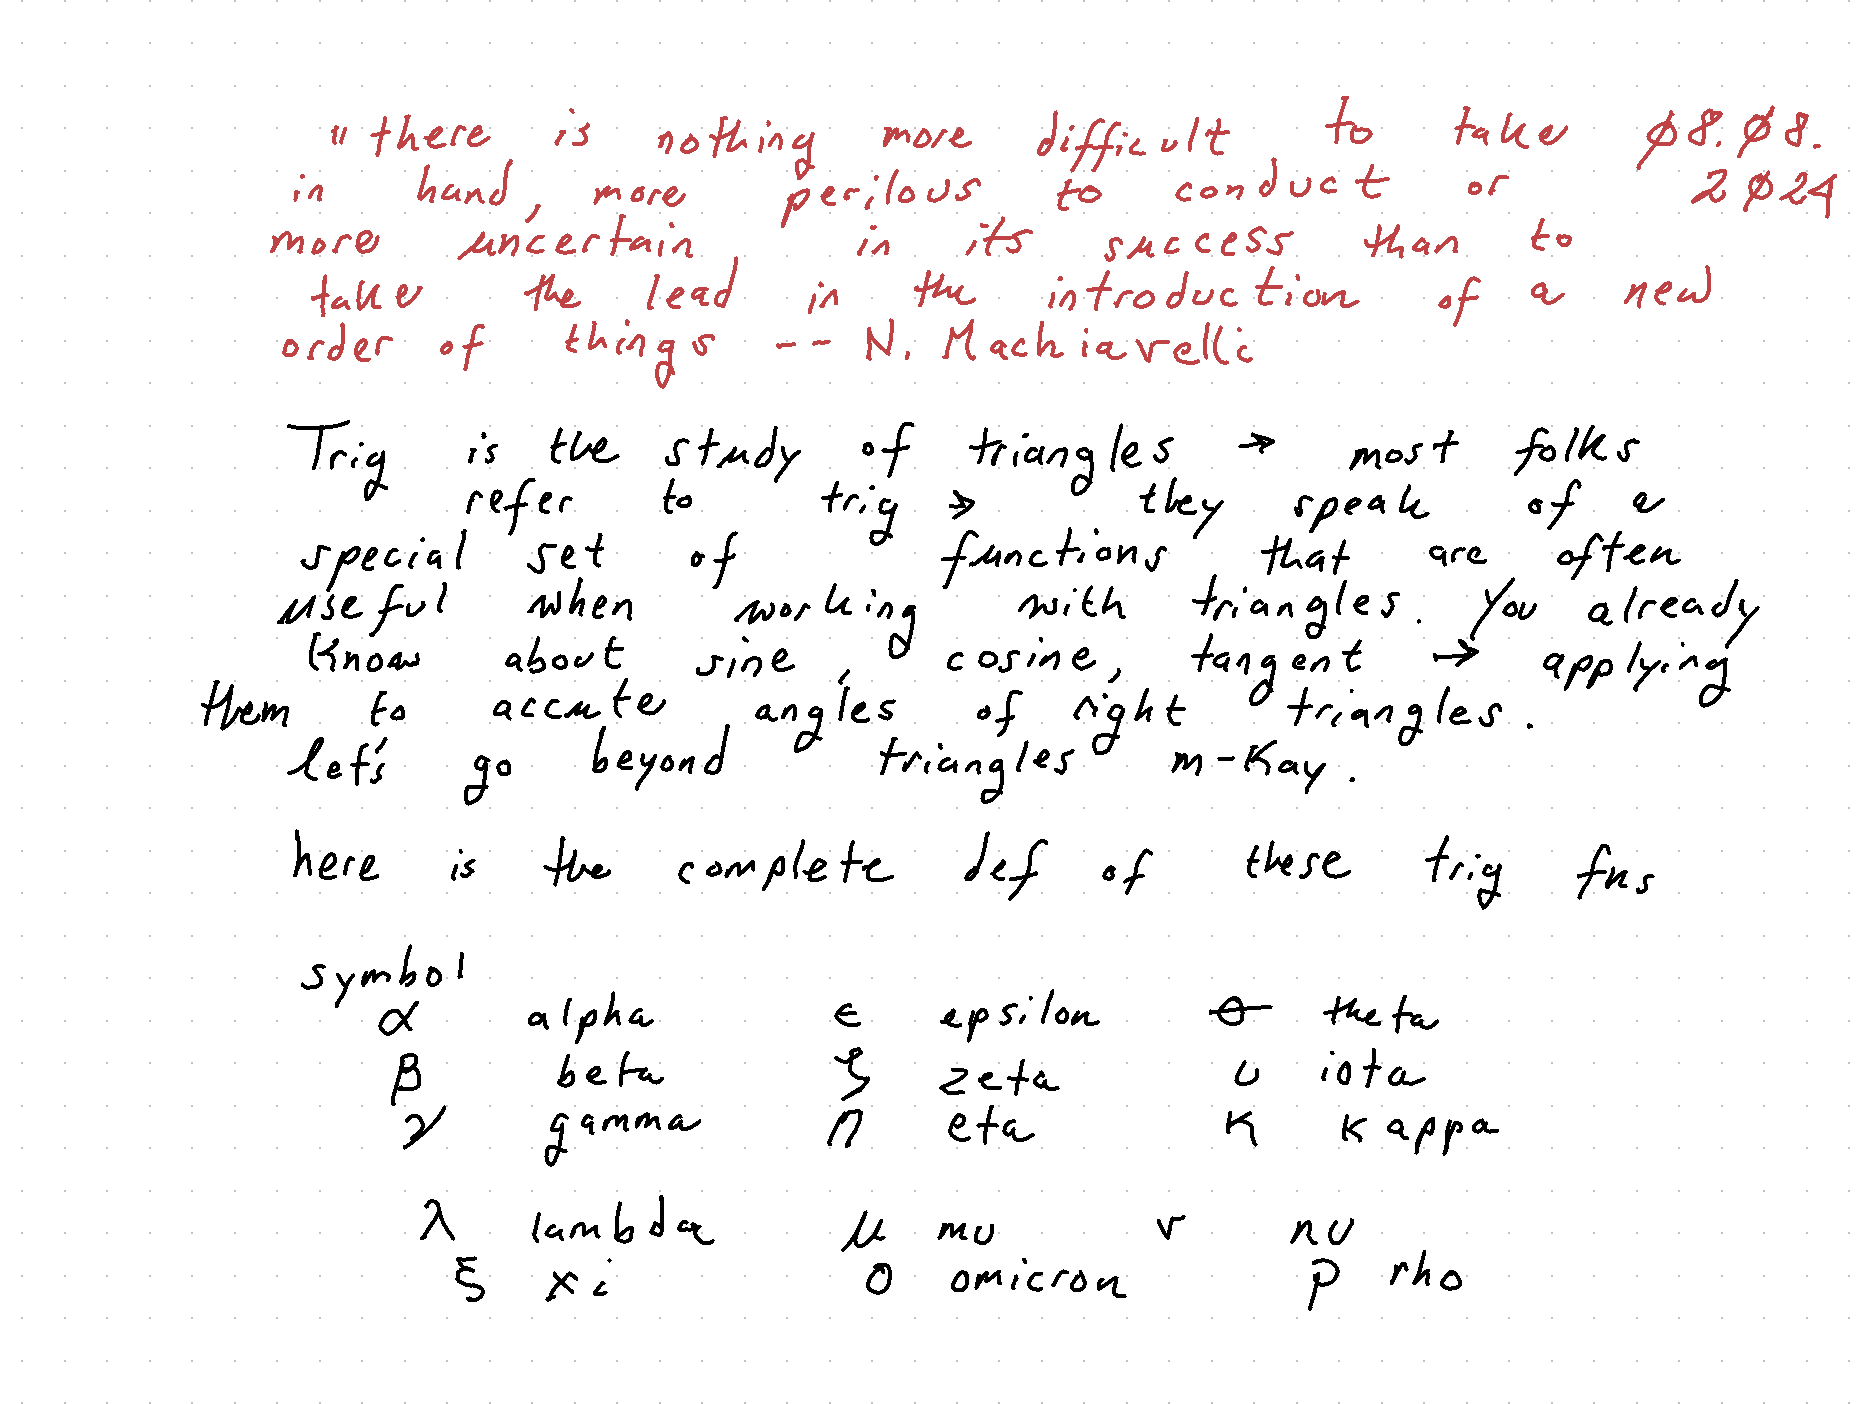 "there is nothing more difficult to take ø8.ø8.
in hand, more perilous to conduct or 2ø24
more uncertain in its success than to
take the lead in the introduction of a new
order of things -- N. Machiavelli
Trig is the study of triangles → most folks
refer to trig → they speak of a
special set of functions that are often
useful when working with triangles. You already
know about sine, cosine, tangent → applying
them to accute angles of right triangles.
let's go beyond triangles m-kay.
here is the complete def of these trig fns
symbol
α alpha ϵ epsilon θ theta
β beta ζ zeta ι iota
γ gamma η eta κ kappa
λ lambda μ mu ν nu
ξ xi ο omicron ρ rho